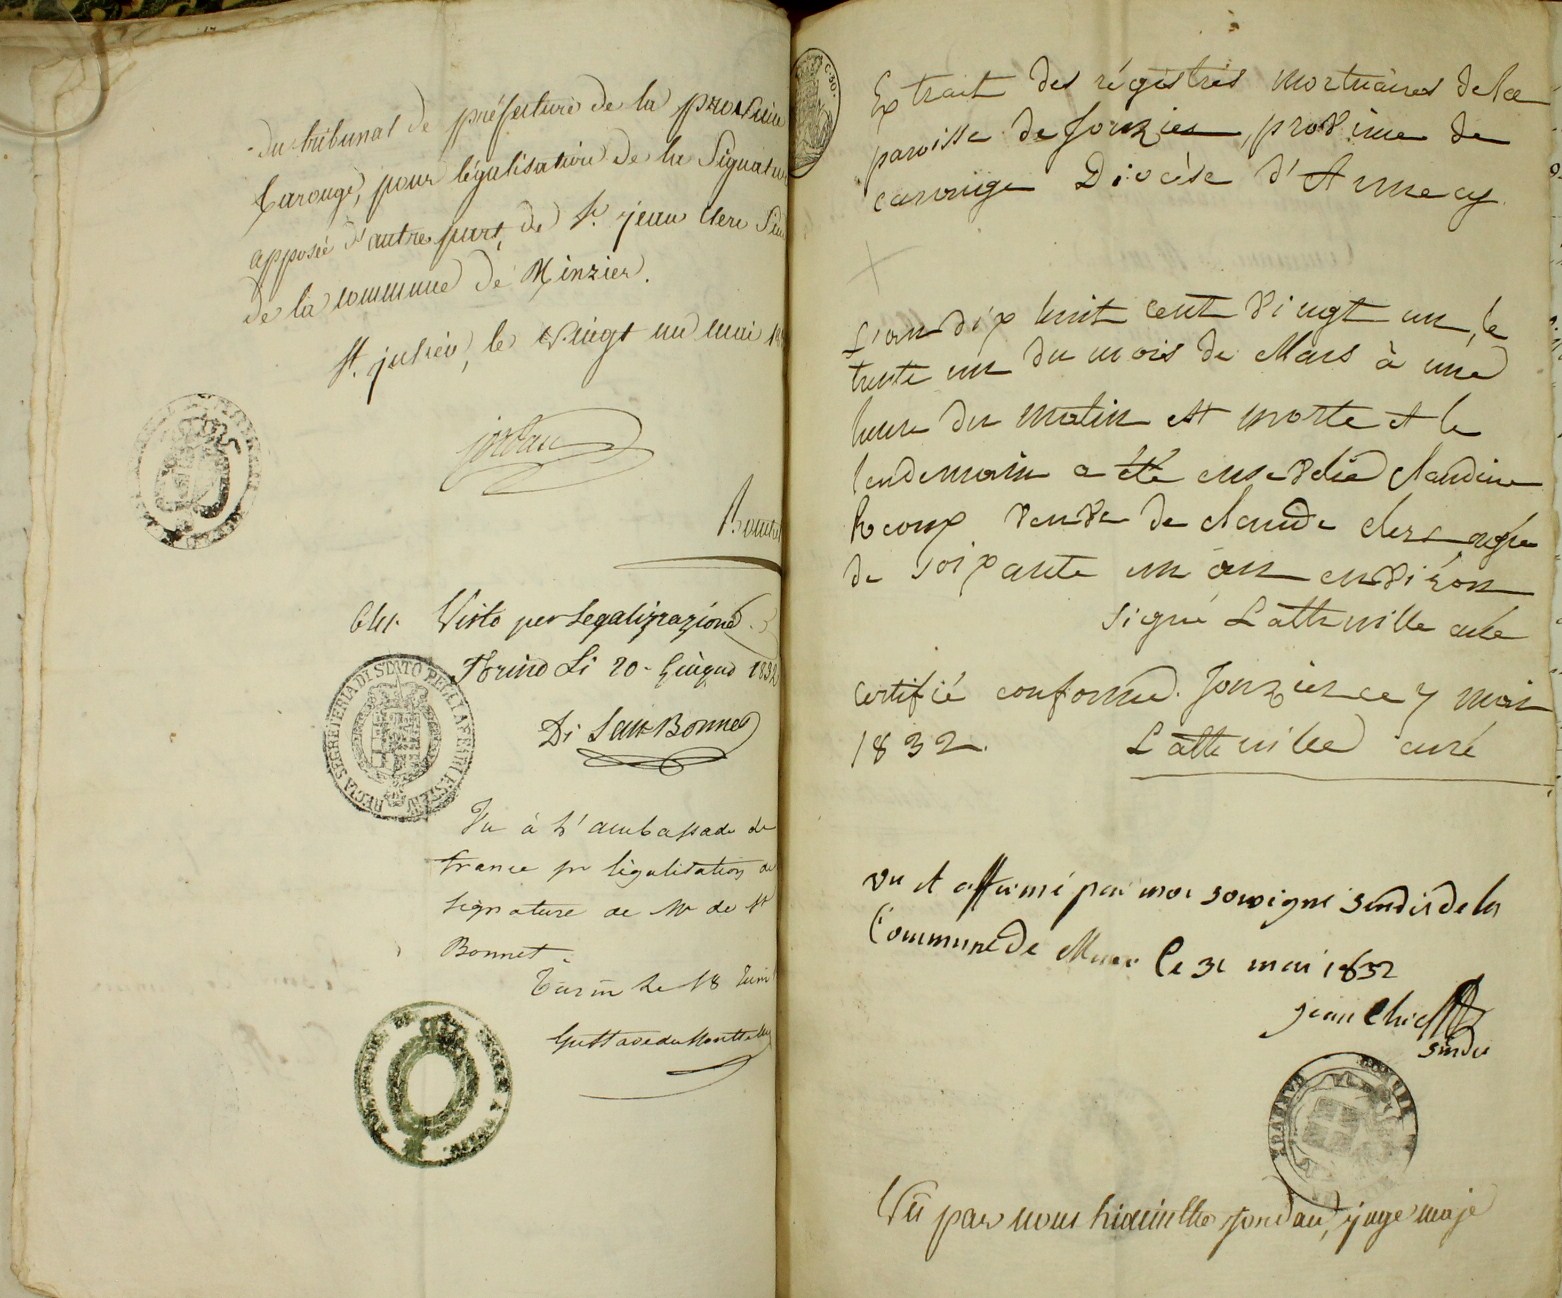 du tribunal de préfecture de la province
Carouge, pour légalisation de la Signature
apposée d'autre part, de Sr. jean Clerc Sin
de la commune de Minzier.
St. julien, le vingt un mai 18
jordan
Visto per legalizzazione
Torino li 20 Giugno 1832
Di San Bonnet
REGIA SEGRETERIA DI STATO PER GLI AFFARI ESTERI
Vu à l'ambassade de
france pr légalisation de
signature de Mr de St
Bonnet.
Turin le 18 Juin
Extrait des régistres mortuaires de la
paroisse de Jonzier, province de
carouge Diocèse d'Annecy
L'an dix huit cent vingt un, le
trente un du mois de Mars à une
heure du matin est morte et le
lendemain a été ensevelie claudine
veuve de claude clerc agée
de soixante un an environ
signé Latheville curé
certifié conforme. Jonzier ce 7 mai
1832. Latheville curé
vu et affirmé par moi sousigné sindic de la
Commune de le 31 mai 1832
jean
sindic
Vu par nous hiacinthe jordan, juge maje